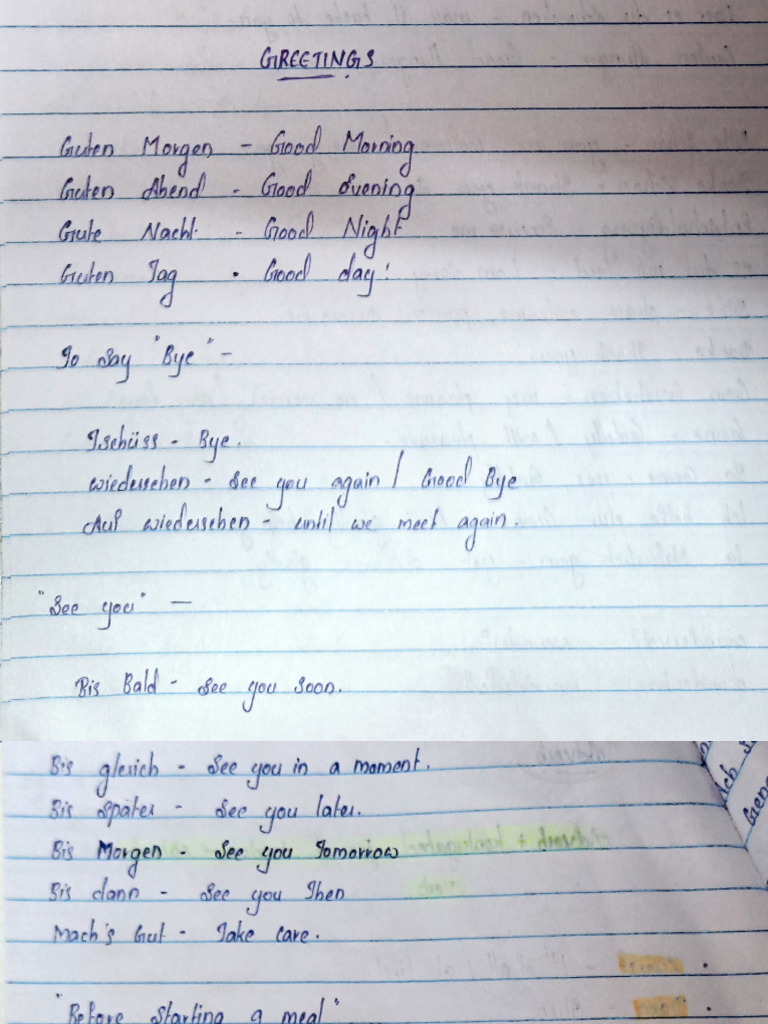 GREETINGS
Guten Morgen - Good Morning
Guten Abend - Good Evening
Gute Nacht - Good Night
Guten Tag - Good day!
To say "Bye" -
Tschüss - Bye.
wiedersehen - See you again / Good Bye
Auf wiedersehen - until we meet again.
"See you" -
Bis Bald - See you soon.
Bis gleich - See you in a moment.
Bis später - See you later.
Bis Morgen - See you Tomorrow
Bis dann - See you Then
Mach's Gut - Take care.
"Before starting a meal"